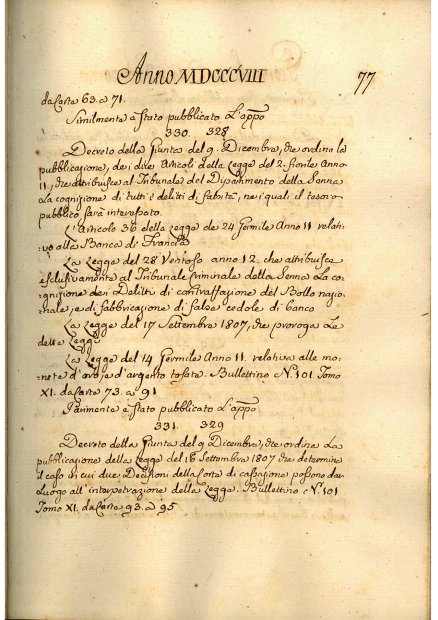 Anno MDCCCVIII 77
da Carte 63. a 71.
Similmente è stato pubblicato L'appo
330. 328
Decreto della Giunta del 9. Dicembre, che ordina la
pubblicazione, dei due Articoli della Legge del 2. fiorile Anno
11, che attribuisce al Tribunale del Dipartimento della Senna
La cognizione di tutti i delitti di falsità, nei quali il tesoro
pubblico sarà interessato.
L'Articolo 36 della Legge de 24 Germile Anno 11 relati-
vo alla Banca di Francia
La Legge del 28 Ventoso anno 12. che attribuisce
esclusivamente al Tribunale criminale della Senna La co-
gnizione dei Delitti di contraffazione del Bollo nazio-
nale, e di fabbricazione di false cedole di banco
La Legge del 17 Settembre 1807, che proroga Le
dette Leggi
La Legge del 14 Germile Anno 11. relativa alle mo-
nete d'oro, e d'argento tosate. Bullettino N.º 101. Tomo
XI. da Carte 73. a 91
Parimente è stato pubblicato L'appo
331. 329
Decreto della Giunta del 9 Dicembre, che ordina La
pubblicazione della Legge del 16 Settembre 1807 che determina
il caso in cui due Decisioni della Corte di cassazione possono dar
Luogo all'interpetrazione della Legge. Bullettino N.º 101
Tomo XI. da Carte 93. a 95